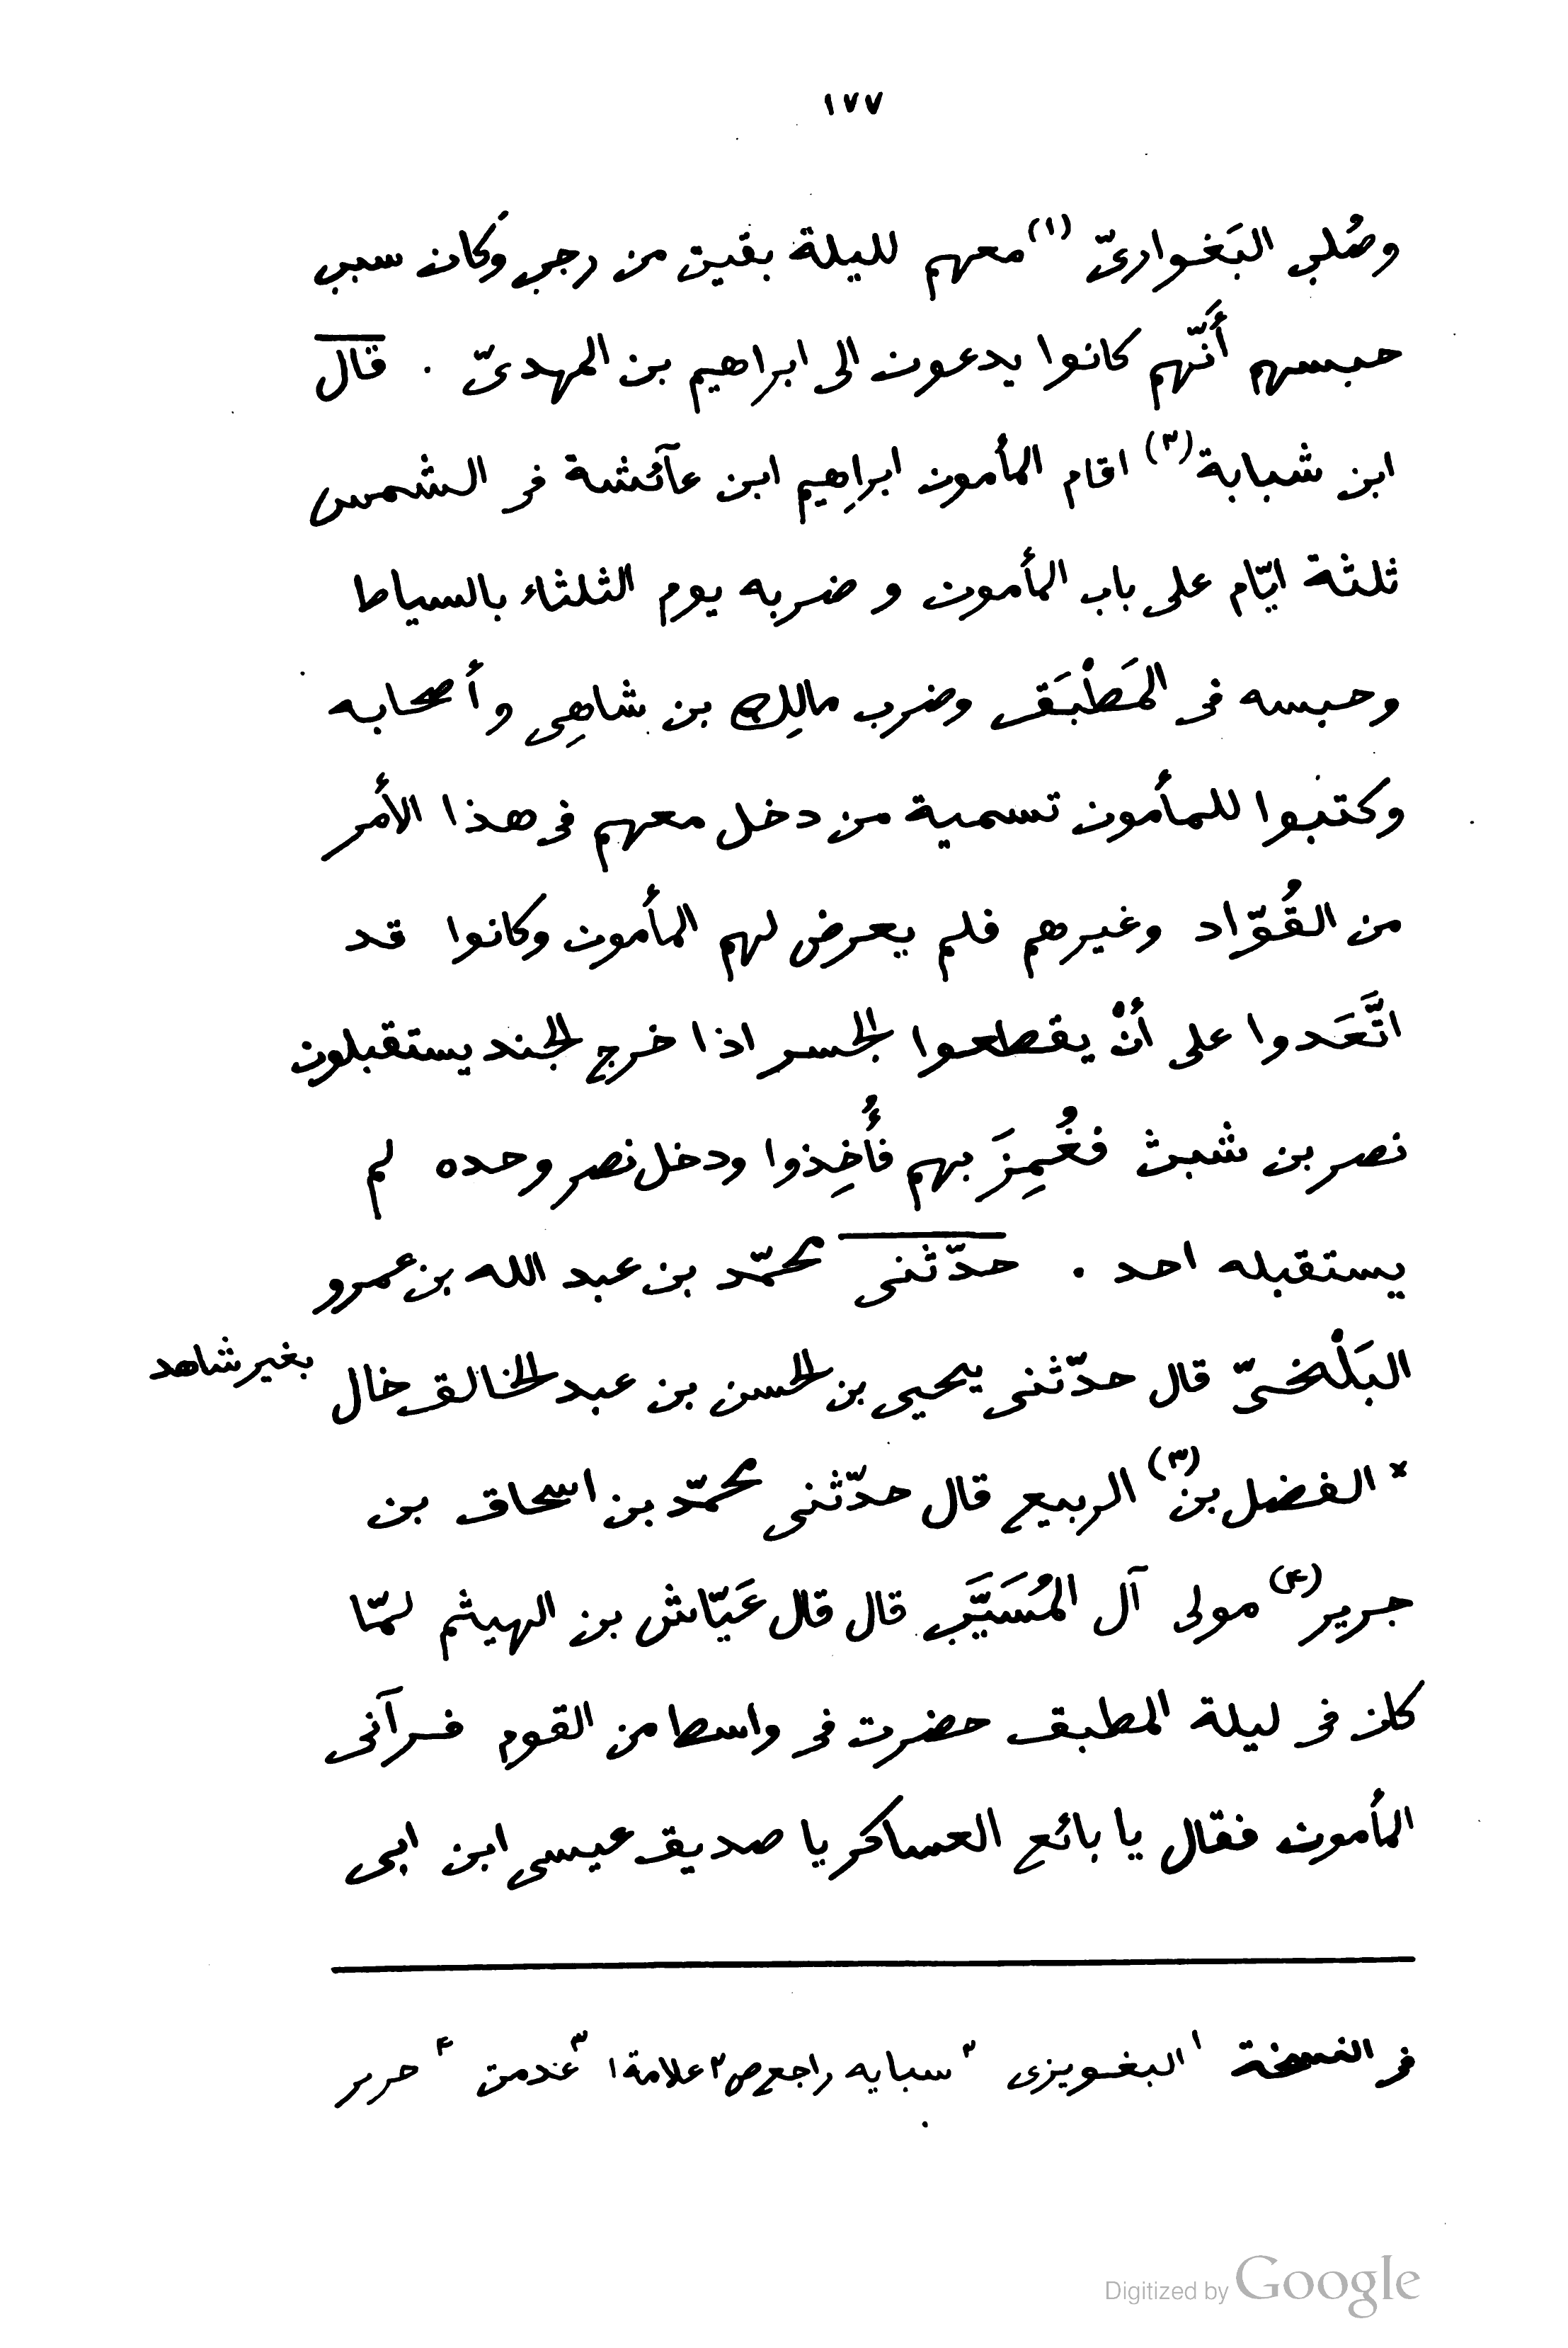 ١٧٧
وصُلب البَغواریّ (١) معهم لليلة بقيت من رجب وكان سبب
حبسهم أَنّهم كانوا يدعون الى ابراهيم بن المهدىّ . قال
ابن شبابة (٢) اقام المأمون ابراهِيم ابن عآئشة فى الشمس
ثلثة ايّام على باب المأمون و ضربه يوم الثلثاء بالسياط
وحبسه فى المَطْبَق وضرب مالِك بن شاهِى وأصحابه
وكتبوا للمأمون تسمية من دخل معهم فى هذا الأمر
من القُوّاد وغيرهم فلم يعرض لهم المأمون وكانوا قد
اتَّعَدوا على أنْ يقطعوا الجسر اذا خرج الجند يستقبلون
نصر بن شبث فغُمِزَ بهم فأُخِذوا ودخل نصر وحده لم
يستقبله احد . حدّثنى محمّد بن عبد الله بن عمرو
البَلْخىّ قال حدّثنى يحيى بن الحسن بن عبد الخالق خال بغير شاهد
* الفضل بن (٣) الربيع قال حدّثنى محمّد بن اسحاق بن
جرير (٤) مولى آل المُسَيَّب قال قال عَيّاش بن الهيثم لمّا
كان فى ليلة المطبق حضرت فى واسط من القوم فرآنى
المأمون فقال يا بائع العساكر يا صديق عيسى ابن ابى
فى النسخة ١ البغويزى ٢ سبايه راجع ص ٢ علامة ١ ٣ عندمن ٤ حرير
Digitized by Google